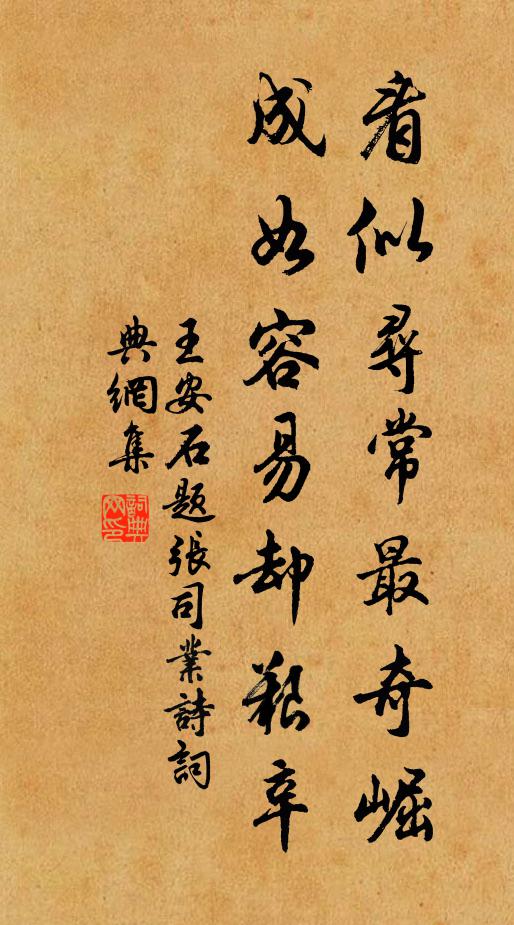 看似尋常最奇崛
成如容易却艱辛
王安石題張司業詩詞
典網集
詞典
网印